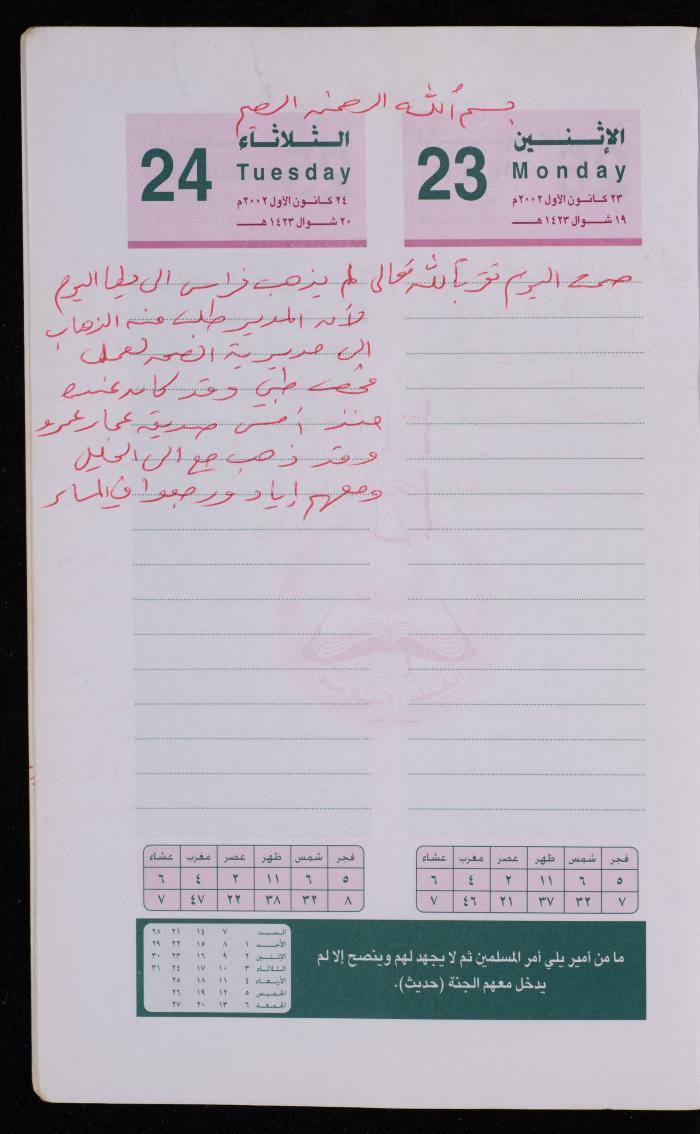 بسم الله الرحمن الرحيم
الإثنين
Monday
23
٢٣ كانون الأول ٢٠٠٢م
١٩ شوال ١٤٢٣ هـ
صمت اليوم تقرباً لله تعالى
الثلاثاء
Tuesday
24
٢٤ كانون الأول ٢٠٠٢م
٢٠ شوال ١٤٢٣ هـ
لم يذهب فراس الى يطا اليوم
لأن المدير طلب منه الذهاب
الى مديرية الصحة لعمل
فحص طبي وقد كان عنده
منذ أمس صديقه عمار عمرو
وقد ذهب مع الى الخليل
ومعهم إياد ورجعوا في المساء
الكتلة الإسلامية
فجر شمس ظهر عصر مغرب عشاء
٥ ٦ ١١ ٢ ٤ ٦
٧ ٣٢ ٣٧ ٢١ ٤٦ ٧
فجر شمس ظهر عصر مغرب عشاء
٥ ٦ ١١ ٢ ٤ ٦
٨ ٣٢ ٣٨ ٢٢ ٤٧ ٧
ما من أمير يلي أمر المسلمين ثم لا يجهد لهم وينصح إلا لم
يدخل معهم الجنة (حديث).
السبت ٧ ١٤ ٢١ ٢٨
الأحد ١ ٨ ١٥ ٢٢ ٢٩
الإثنين ٢ ٩ ١٦ ٢٣ ٣٠
الثلاثاء ٣ ١٠ ١٧ ٢٤ ٣١
الأربعاء ٤ ١١ ١٨ ٢٥
الخميس ٥ ١٢ ١٩ ٢٦
الجمعة ٦ ١٣ ٢٠ ٢٧